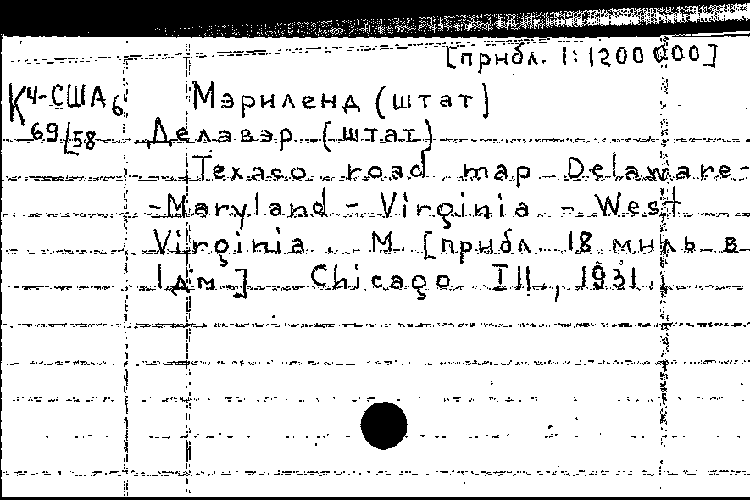 [прибл. 1:1200000]
К4-США6 Мэриленд (штат)
69/58 Делавэр (штат)
Texaco road map Delaware-
-Maryland - Virginia - West
Virginia. М. [прибл. 18 миль в
1дм] Chicago Ill., 1931.